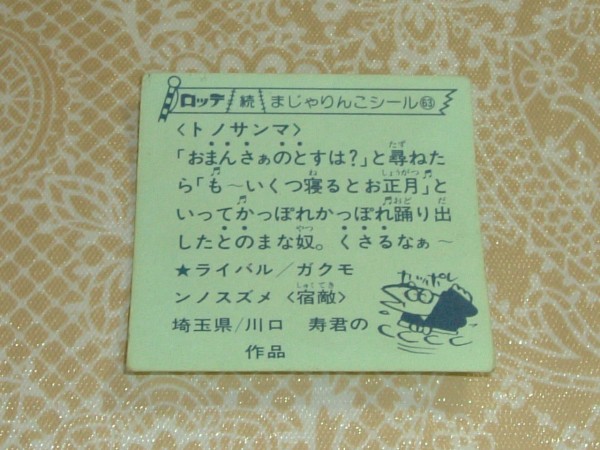 ロッテ 続 まじゃりんこシール 63
〈トノサンマ〉
「おまんさぁのとすは?」と尋ねた
ら「も～いくつ寝るとお正月」と
いってかっぽれかっぽれ踊り出
したとのまな奴。くさるなぁ～
★ライバル/ガクモ
ンノスズメ〈宿敵〉
埼玉県/川口 寿君の
作品
カッポレ